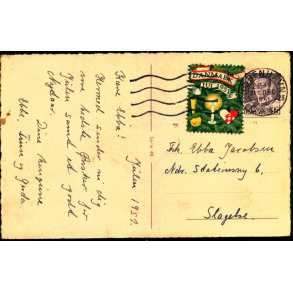 Julen 1951.
Kære Ebba!
Hermed sender vi dig
vore bedste Ønsker for
Julen samt et godt
Nytaar.
Dine hengivne
Ebbe, og Gerda
DANMARK
JUL 1951
KØBENHAVN
Frk. Ebba Jacobsen
Ndr. Stationsvej 6,
Slagelse.